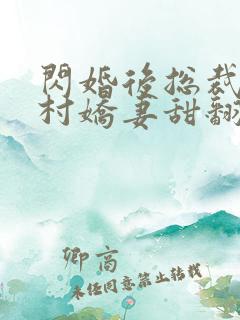 閃婚後總裁
村嬌妻甜翻
卿高
未经同意禁止转载